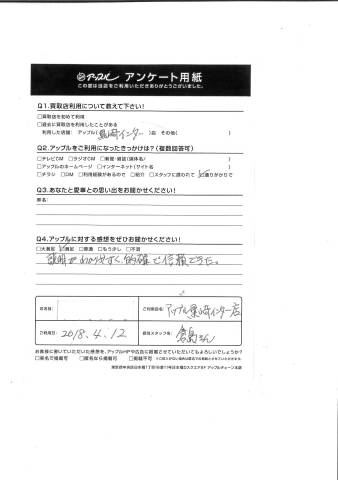 アップル アンケート用紙
この度は当店をご利用いただきありがとうございました。
Q1.買取店利用について教えて下さい!
□買取店を初めて利用
□過去に買取店を利用したことがある
利用した店舗: アップル( 黒崎インター )店 その他( )
Q2.アップルをご利用になったきっかけは?(複数回答可)
□テレビCM □ラジオCM □新聞・雑誌(媒体名/ )
□アップルのホームページ □インターネット(サイト名 )
□チラシ □DM □利用経験があるので □紹介 □スタッフに誘われて ☑通りがかりで
Q3.あなたと愛車との思い出をお聞かせください!
車名:
Q4.アップルに対する感想をぜひお聞かせください!
□大満足 ☑満足 □普通 □もう少し □不満
説明がわかりやすく、的確で信頼できた。
お名前:
ご利用店名: アップル黒崎インター店
ご利用日: 2018.4.12
担当スタッフ名: 倉島さん
お客様に書いていただいた感想を、アップルHPや広告に掲載させていただいてもよろしいでしょうか?
□実名で掲載可 □匿名なら掲載可 □掲載不可
東京都中央区日本橋1丁目19番1号日本橋ダイヤビルディング